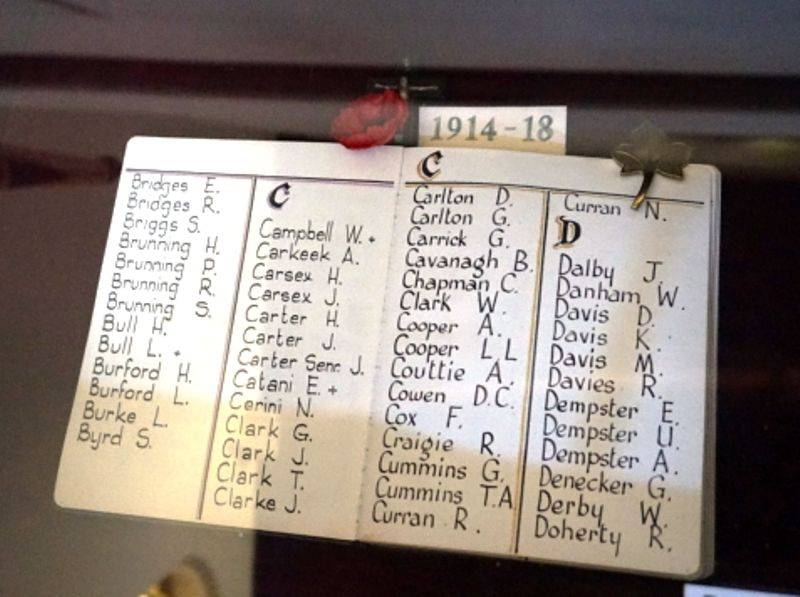 1914-18
Bridges E.
Bridges R.
Briggs S.
Brunning H.
Brunning P.
Brunning R.
Brunning S.
Bull H.
Bull L. +
Burford H.
Burford L.
Burke L.
Byrd S.
C
Campbell W. +
Carkeek A.
Carsex H.
Carsex J.
Carter H.
Carter J.
Carter Senr J.
Catani E. +
Cerini N.
Clark G.
Clark J.
Clark T.
Clarke J.
C
Carlton D.
Carlton G.
Carrick G.
Cavanagh B.
Chapman C.
Clark W.
Cooper A.
Cooper L.L
Couttie A.
Cowen D.C.
Cox F.
Craigie R.
Cummins G.
Cummins T.A
Curran R.
Curran N.
D
Dalby J.
Danham W.
Davis D.
Davis K.
Davis M.
Davies R.
Dempster E.
Dempster U.
Dempster A.
Denecker G.
Derby W.
Doherty R.